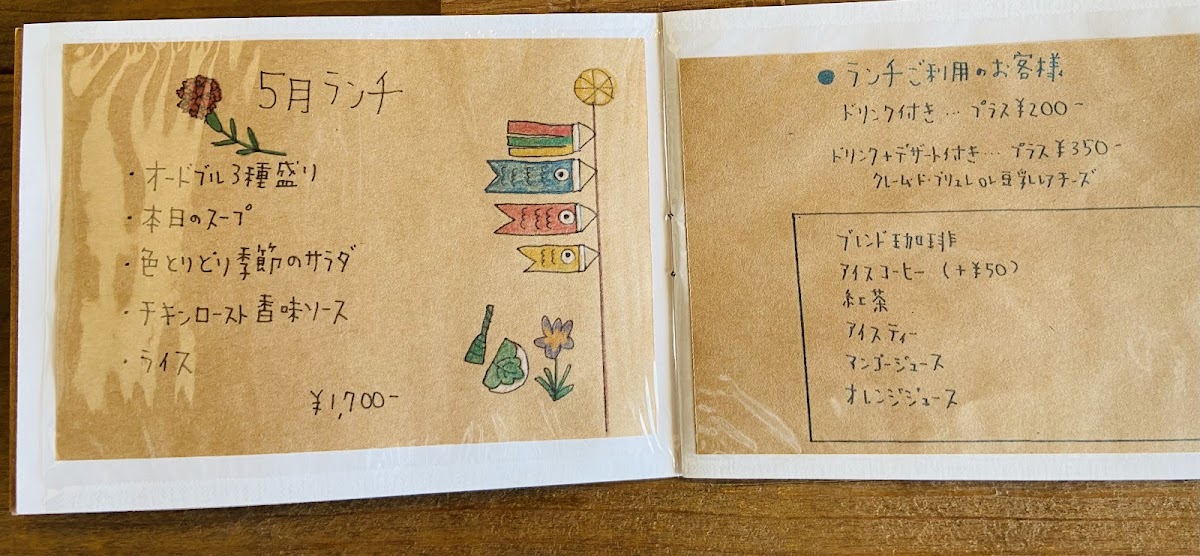 5月ランチ
・オードブル3種盛り
・本日のスープ
・色とりどり季節のサラダ
・チキンロースト香味ソース
・ライス
¥1,700-
●ランチご利用のお客様
ドリンク付き…プラス¥200-
ドリンク+デザート付き…プラス¥350-
クレーム・ド・ブリュレor豆乳レアチーズ
ブレンド珈琲
アイスコーヒー(+¥50)
紅茶
アイスティー
マンゴージュース
オレンジジュース